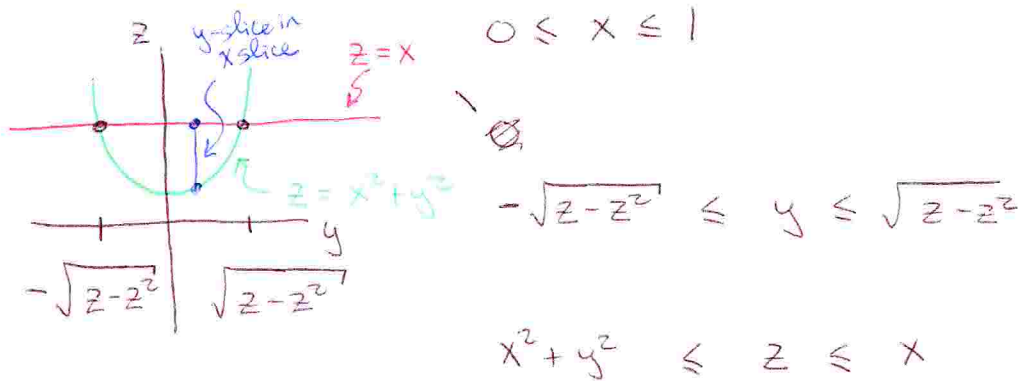 z
y-slice in
x slice
z = x
z = x² + y²
y
-√(z - z²)
√(z - z²)
0 ≤ x ≤ 1
-√(z - z²) ≤ y ≤ √(z - z²)
x² + y² ≤ z ≤ x